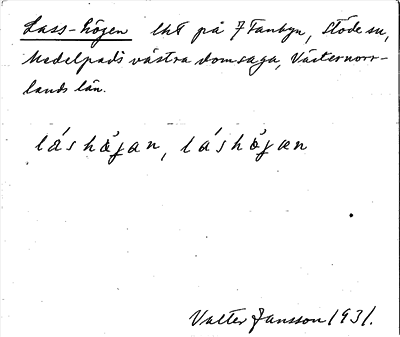 Lass-högen lht på 7 Fanbyn, Stöde sn,
Medelpads västra domsaga, Västernorr-
lands län.
láshǻgan, láshǻgan
Valter Jansson 1931.